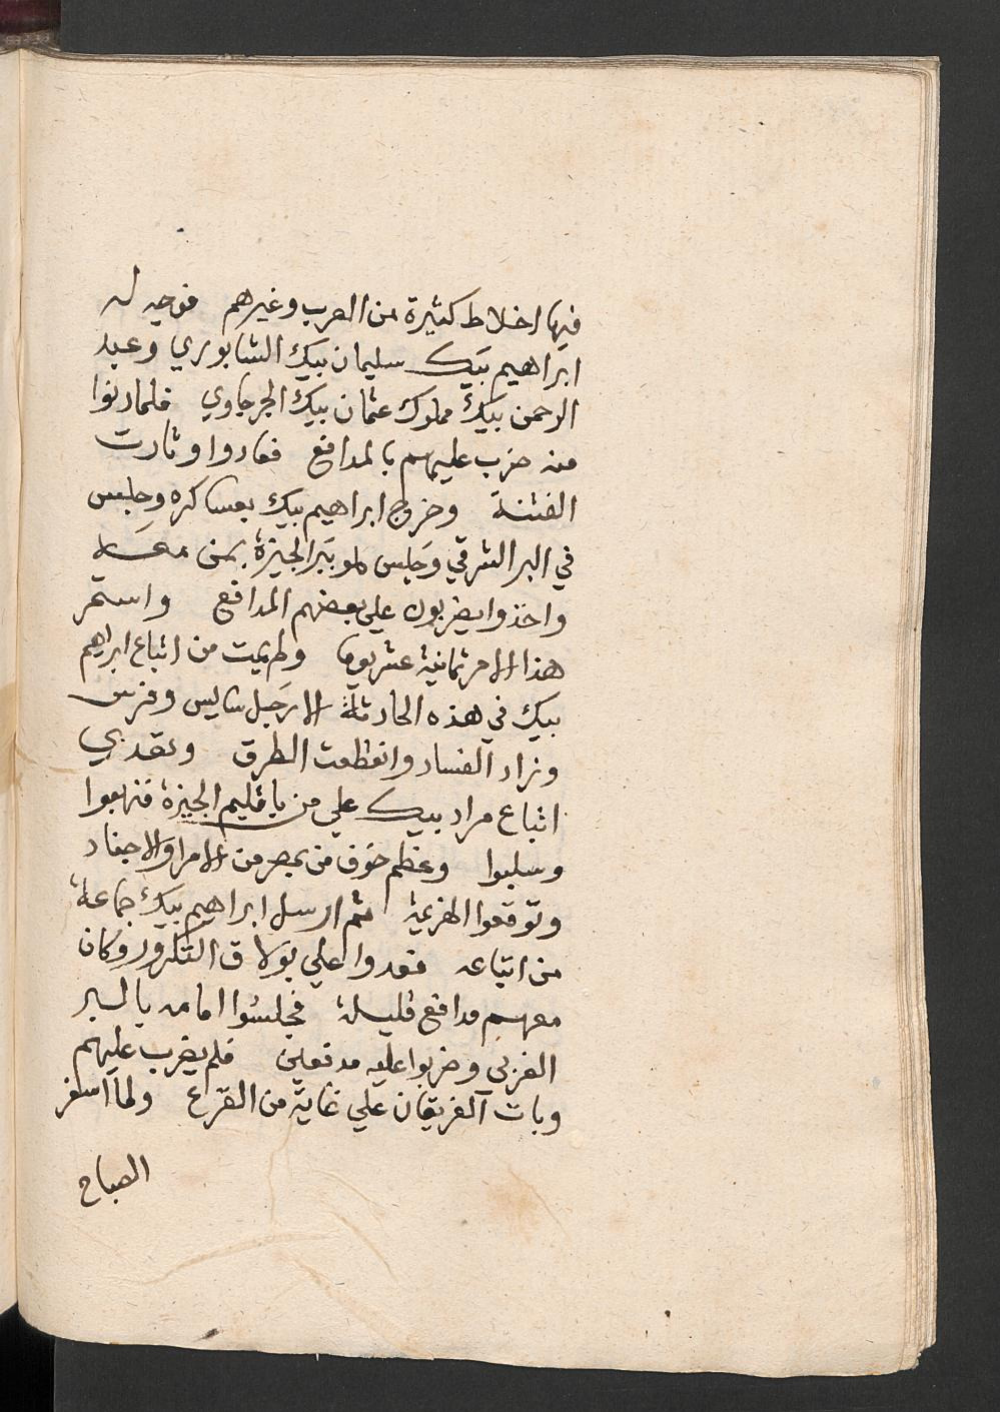 فيها اخلاط كثيرة من العرب وغيرهم فوجه له
ابراهيم بيك سليمان بيك الشابوري وعبد
الرحمن بيك مملوك عثمان بيك الجرجاوي فلما دنوا
منه ضرب عليهم بالمدافع فعادوا وثارت
الفتنة وخرج ابراهيم بيك بعساكره وجلس
في البر الشرقي وجلس هو ببر الجيزة بمن معه
واخذوا يضربون علي بعضهم المدافع واستمر
هذا الامر ثمانية عشر يوما ولم يمت من اتباع ابراهيم
بيك في هذه الحادثة الا رجل سايس وفرس
وزاد الفساد وانقطعت الطرق وتعدي
اتباع مراد بيك علي من باقليم الجيزة فنهبوا
وسلبوا وعظم خوف من بمصر من الامرا والاجناد
وتوقعوا الهزيمة ثم ارسل ابراهيم بيك جماعة
من اتباعه فعدوا علي بولاق التكرور وكان
معهم مدافع قليلة فجلسوا امامه بالبر
الغربي وضربوا عليه مدفعين فلم يضرب عليهم
وبات الفريقان علي غاية من القراع ولما اسفر
الصباح